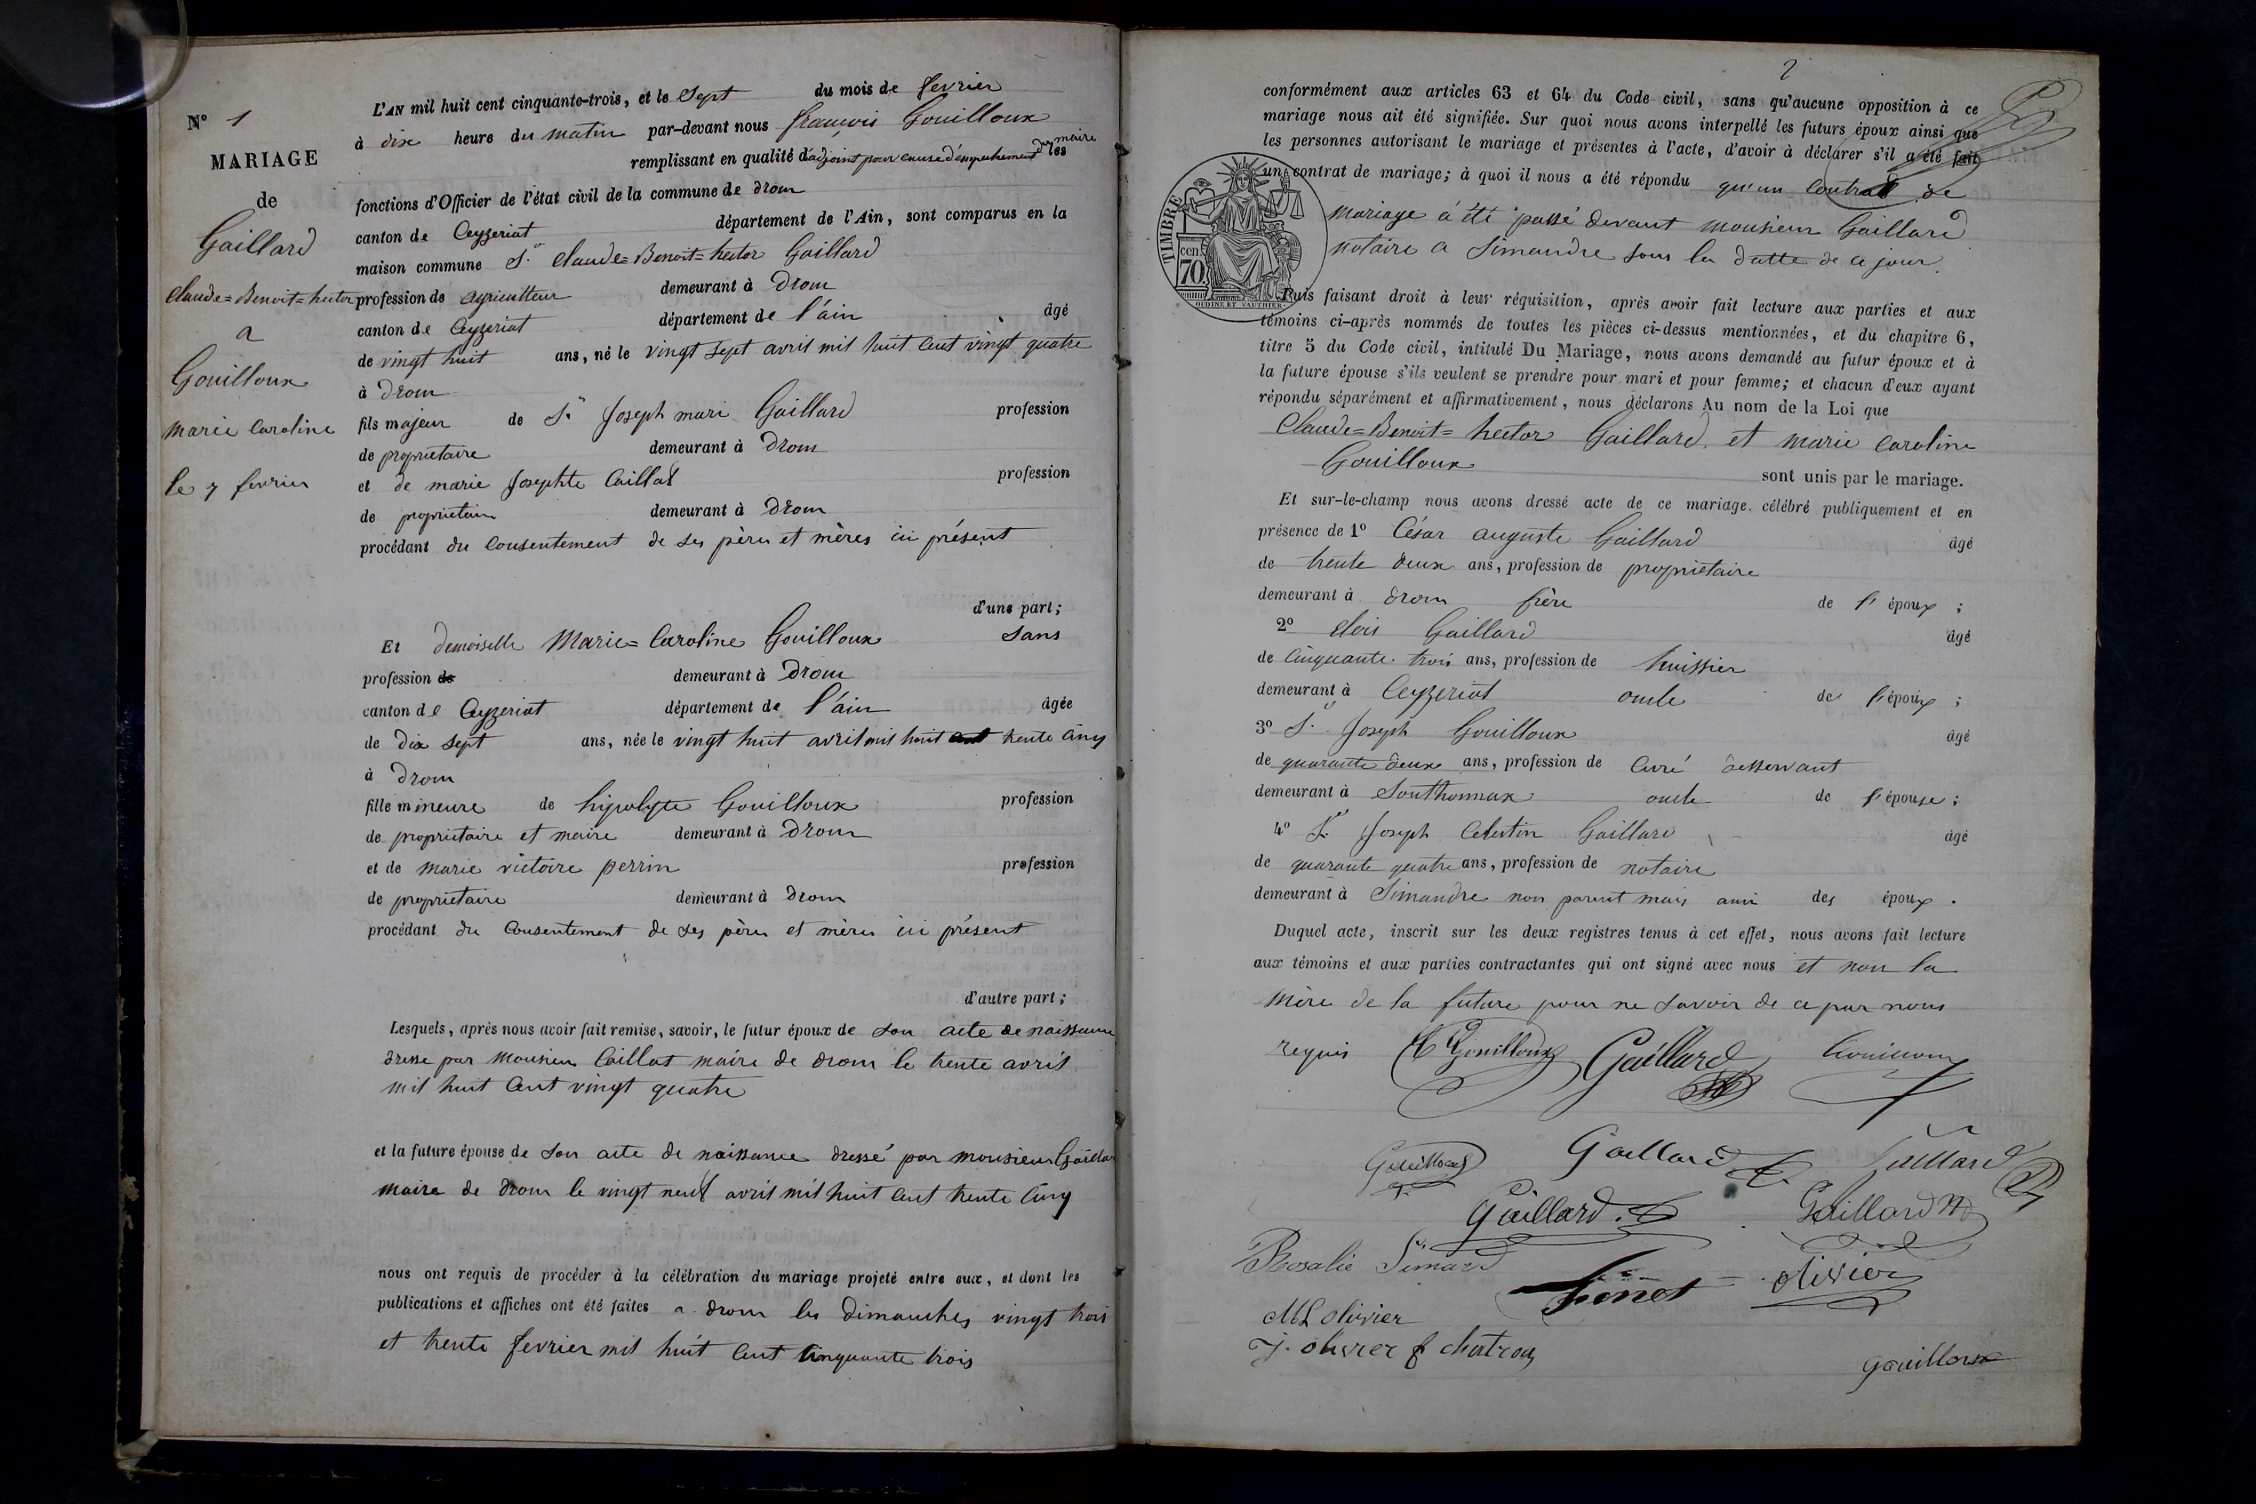 N° 1
MARIAGE
de
Gaillard
Claude=Benoit=hector
a
Gouilloux
marie Caroline
le 7 fevrier
L'AN mil huit cent cinquante-trois, et le Sept du mois de fevrier
à dix heure du matin par-devant nous françois Gouilloux
remplissant en qualité d'adjoint pour cause d'empechement du maire les
fonctions d'Officier de l'état civil de la commune de drom
canton de Ceyzeriat département de l'Ain, sont comparus en la
maison commune Sr Claude=Benoit=hector Gaillard
profession de agriculteur demeurant à Drom
canton de Ceyzeriat département de l'ain âgé
de vingt huit ans, né le vingt sept avril mil huit cent vingt quatre
à drom
fils majeur de Sr Joseph mari Gaillard profession
de propriétaire demeurant à Drom
et de marie Josephte Caillat profession
de propriétaire demeurant à Drom
procédant du Consentement de ses pères et mères ici présent
d'une part;
Et demoiselle Marie=Caroline Gouilloux sans
profession de demeurant à Drom
canton de Ceyzeriat département de l'ain âgée
de dix sept ans, née le vingt huit avril mil huit cent trente cinq
à Drom
fille mineure de hipolyte Gouilloux profession
de propriétaire et maire demeurant à Drom
et de marie victoire perrin profession
de propriétaire demeurant à Drom
procédant du Consentement de ses pères et mères ici présent
d'autre part;
Lesquels, après nous avoir fait remise, savoir, le futur époux de son acte de naissance
dresse par monsieur Caillat maire de drom le trente avril
mil huit Cent vingt quatre
et la future épouse de son acte de naissance dressé par monsieur Gaillar
maire de drom le vingt neuf avril mil huit cent trente cinq
nous ont requis de procéder à la célébration du mariage projeté entre eux, et dont les
publications et affiches ont été faites a drom les dimanches vingt trois
et trente fevrier mil huit Cent Cinquante trois
2
conformément aux articles 63 et 64 du Code civil, sans qu'aucune opposition à ce
mariage nous ait été signifiée. Sur quoi nous avons interpellé les futurs époux ainsi que
les personnes autorisant le mariage et présentes à l'acte, d'avoir à déclarer s'il a été fait
un contrat de mariage; à quoi il nous a été répondu qu'un Contrat de
mariage a été passé devant monsieur Gaillard
notaire a Simandre sous la datte de ce jour.
TIMBRE
cen
70
OUDINE ET VAUTHIER
Puis faisant droit à leur réquisition, après avoir fait lecture aux parties et aux
témoins ci-après nommés de toutes les pièces ci-dessus mentionnées, et du chapitre 6,
titre 5 du Code civil, intitulé Du Mariage, nous avons demandé au futur époux et à
la future épouse s'ils veulent se prendre pour mari et pour femme; et chacun d'eux ayant
répondu séparément et affirmativement, nous déclarons Au nom de la Loi que
Claude=Benoit=hector Gaillard et marie Caroline
Gouilloux
sont unis par le mariage.
Et sur-le-champ nous avons dressé acte de ce mariage célébré publiquement et en
présence de 1° César auguste Gaillard âgé
de trente deux ans, profession de propriétaire
demeurant à Drom frère de l'époux;
2° elois Gaillard âgé
de Cinquante trois ans, profession de huissier
demeurant à Ceyzeriat oncle de l'époux;
3° Sr Joseph Gouilloux âgé
de quarante deux ans, profession de Curé desservant
demeurant à Southonnax oncle de l'épouse;
4° Sr Joseph Celestin Gaillard âgé
de quarante quatre ans, profession de notaire
demeurant à Simandre non parent mais ami des époux.
Duquel acte, inscrit sur les deux registres tenus à cet effet, nous avons fait lecture
aux témoins et aux parties contractantes qui ont signé avec nous et non la
mère de la future pour ne savoir de ce par nous
requis H Gouilloux Gaillard Gouilloux
Gouilloux Gaillard Gaillard
Gaillard Gaillard
Rosalie Simard
Finet Olivier
ML Olivier
J. olivier f chatron
Gouilloux